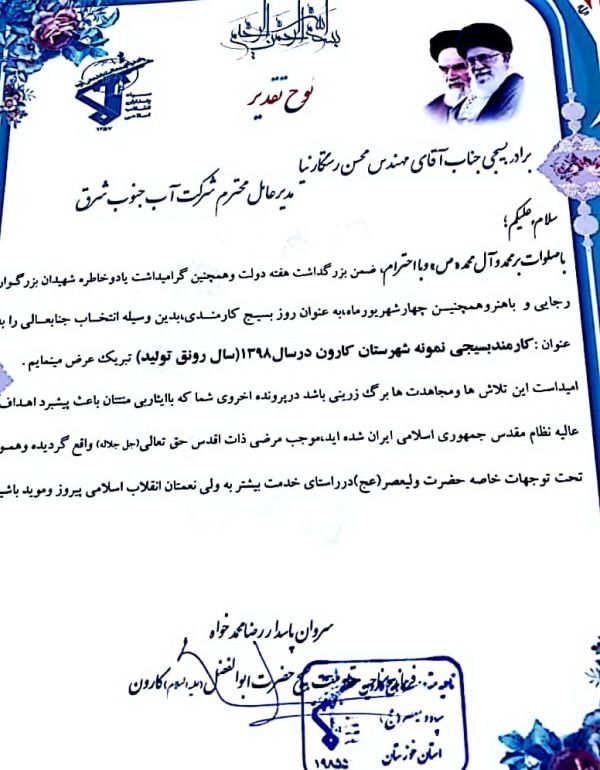 بسم الله الرحمن الرحیم
سپاه
پاسداران
انقلاب
اسلامی
۱۳۵۷
لوح تقدیر
برادر بسیجی جناب آقای مهندس محسن رستگارنیا
مدیرعامل محترم شرکت آب جنوب شرق
سلام علیکم؛
باصلوات بر محمد و آل محمد «ص» و با احترام، ضمن بزرگداشت هفته دولت وهمچنین گرامیداشت یادوخاطره شهیدان بزرگوار
رجایی و باهنروهمچنیـن چهارشهریورماه،به عنوان روز بسیـج کارمنـدی،بدین وسیله انتخـاب جنابعـالی را به
عنوان :کارمندبسیجی نمونه شهرستان کارون درسال۱۳۹۸(سال رونق تولید) تبریک عرض مینمایم .
امیداست این تلاش ها ومجاهدت ها برگ زرینی باشد درپرونده اخروی شما که باایثاربی منتتان باعث پیشبرد اهداف
عالیه نظام مقدس جمهوری اسلامی ایران شده اید،موجب مرضی ذات اقدس حق تعالی(جل جلاله) واقع گردیده وهمو
تحت توجهات خاصه حضرت ولیعصر(عج)درراستای خدمت بیشتر به ولی نعمتان انقلاب اسلامی پیروز وموید باشی
سروان پاسدار رضا محمدخواه
فرمانده حوزه مقاومت بسیج حضرت ابوالفضل (علیه السلام) کارون
سپاه ولیعصر (عج)
استان خوزستان